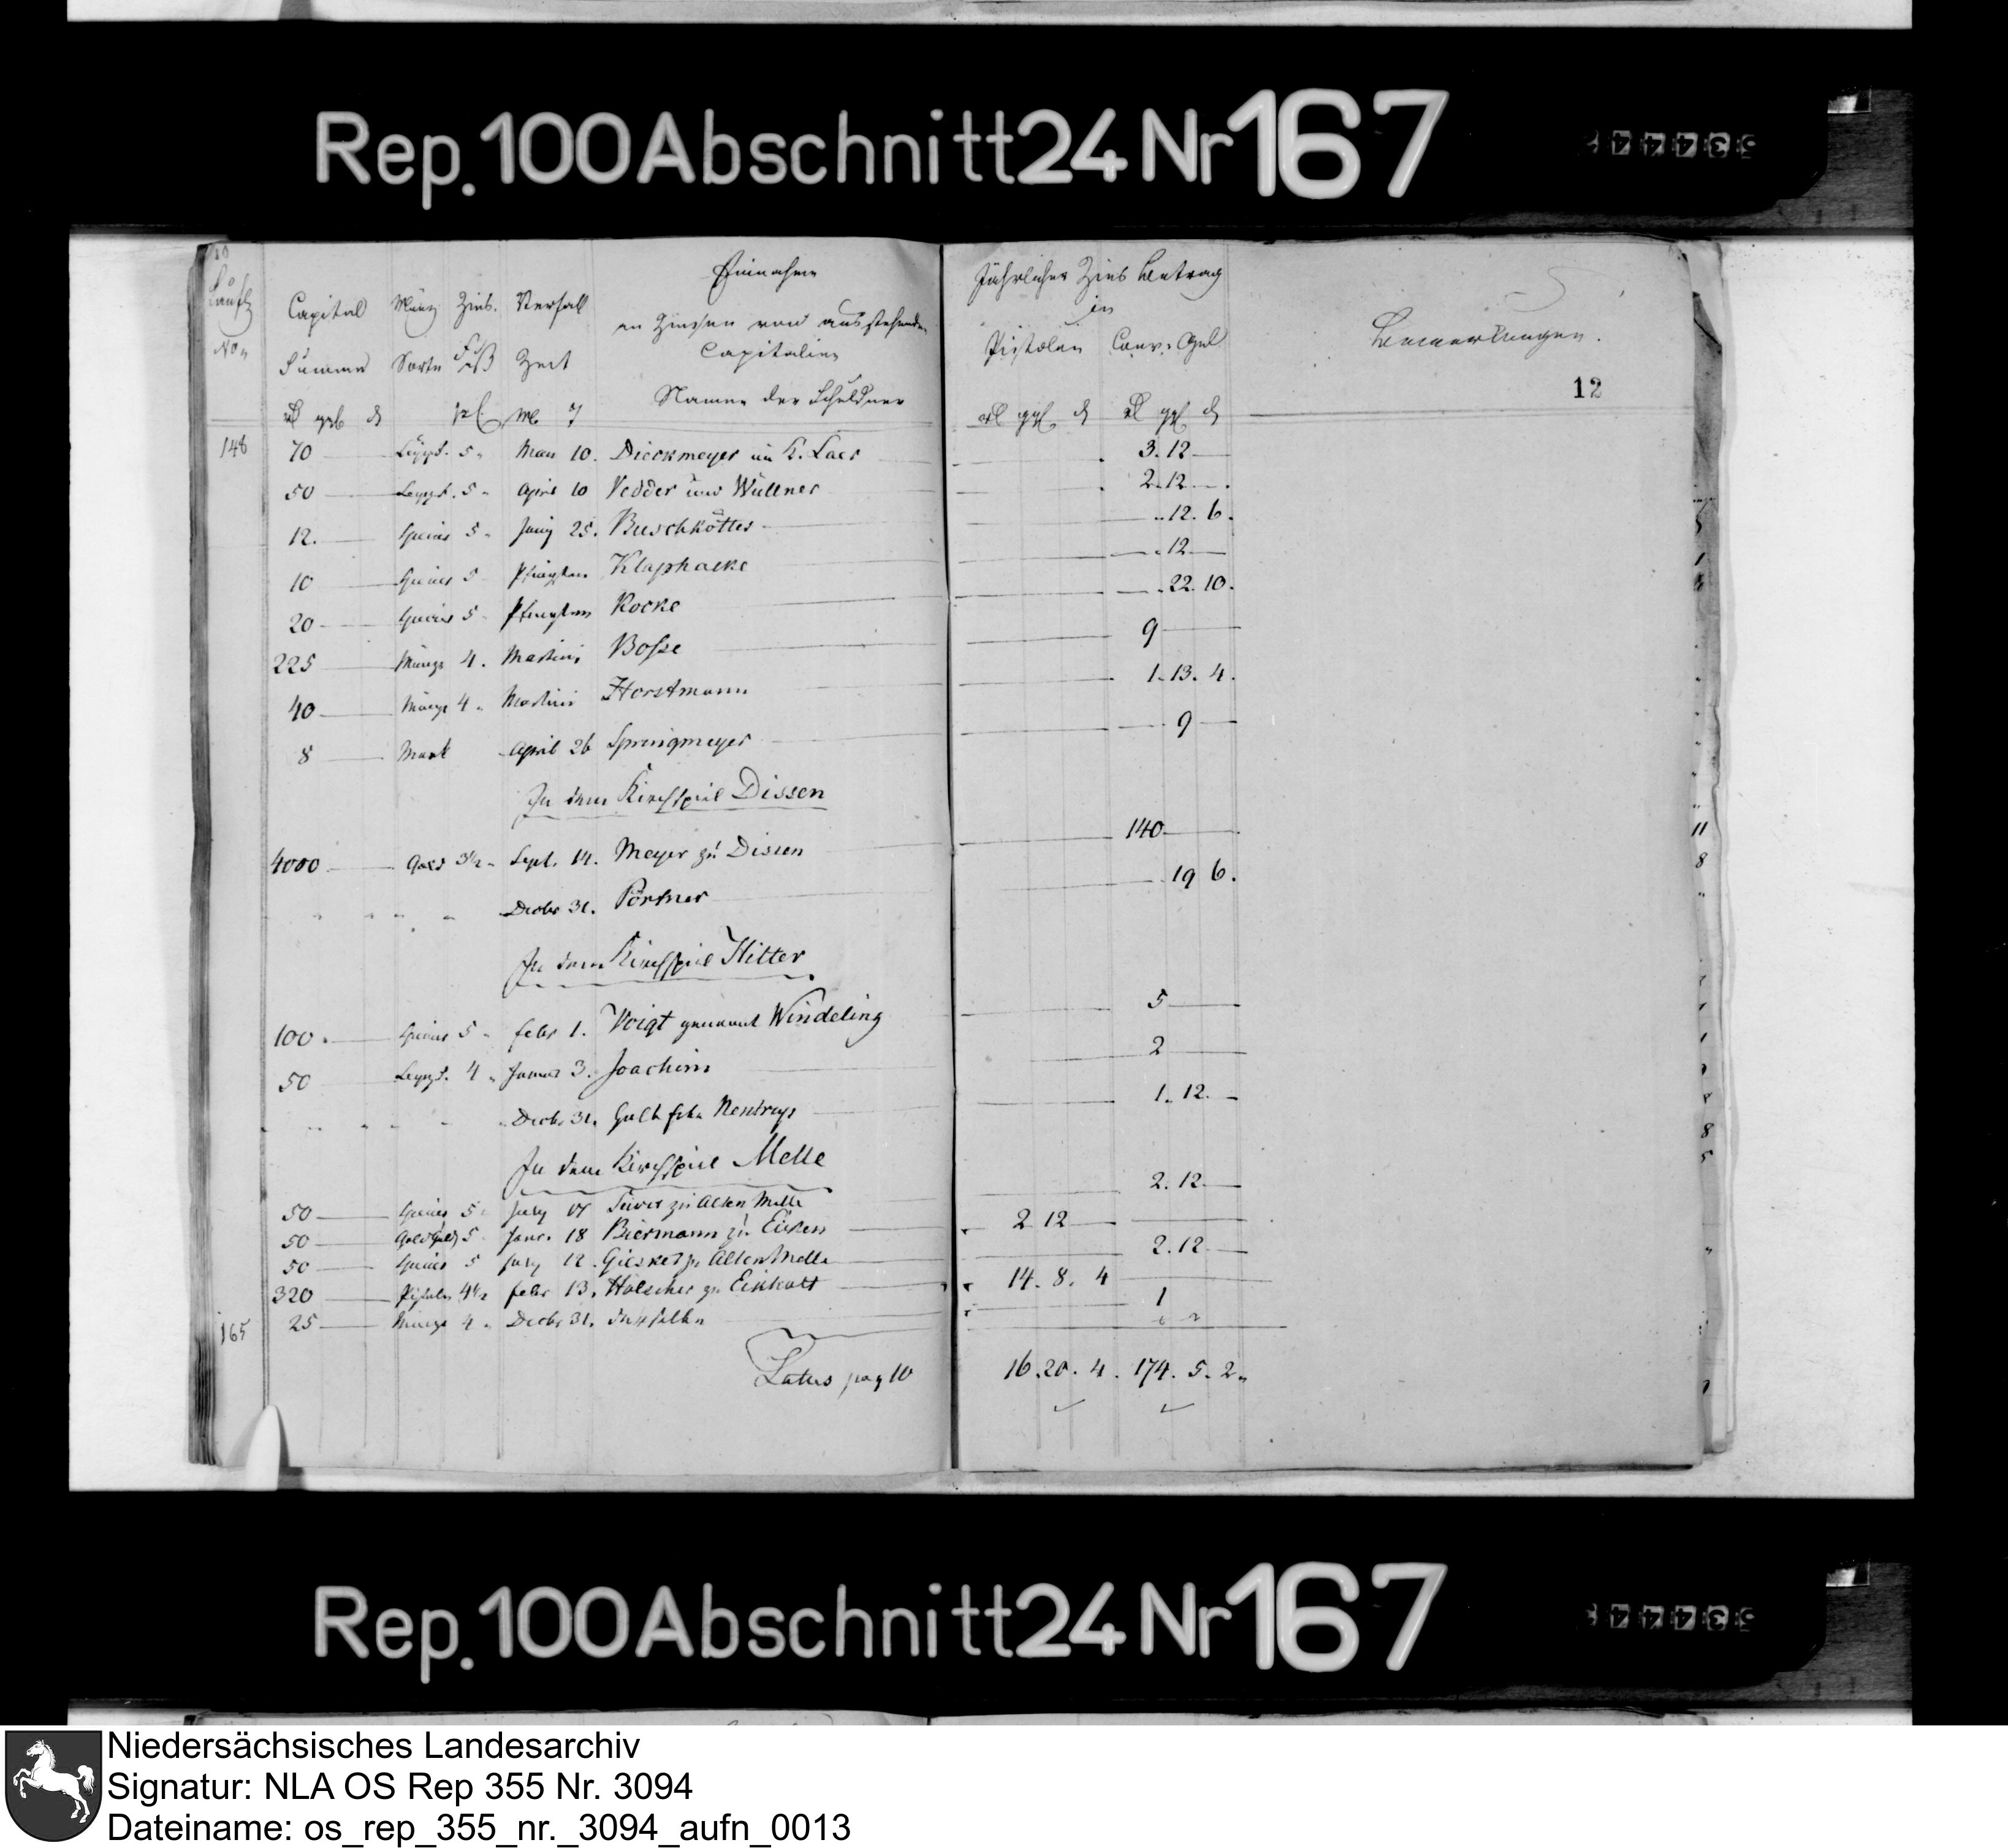 Rep. 100 Abschnitt 24 Nr 167
10
Laufd
No
Capital Summe
Münz Sorte
Zins Fuß
Verfall Zeit
Einnahme
an Zinsen von ausstehenden
Capitalien
Namen der Schuldner
Jährlicher Zins Betrag
in
Pistolen Conv. Geld
Bemerkungen.
12
148 70 Leyyd. 5 Mai 10. Dieckmeyer in K. Laer 3. 12
50 5 April 10 Vedder und Wüllner 2. 12
12. Species 5 Juny 25. Buschkötter 12. 6.
10 Species 5 Pfingsten Klaphacke 12
20 Species 5 Pfingsten Kocke 22. 10.
225 Münze 4. Martini Bosse 9
40 Münze 4 Martini Horstmann 1. 13. 4.
8 Mark April 26 Springmeyer 9
In dem Kirchspiel Dissen
4000 Gold 3½ Sept. 14. Meyer zu Dissen 140
Decbr 31. Pörtner 19 6.
In dem Kirchspiel Hilter
100. Species 5 Febr 1. Voigt genannt Windeling 5
50 4 Januar 3. Joachim 2
Decbr 31. 1. 12.
In dem Kirchspiel Melle
50 Species 5 July zu Alten Melle 2. 12.
50 Gold 5 Janr. 18 Biermann zu Eicken 2 12
50 Species 5 July 12. Giesker zu Alten Melle 2. 12.
320 Pistolen 4½ Febr 13. Hölscher zu Einholt 14. 8. 4
165 25 Münze 4 Decbr 31. derselbe 1
Latus pag 10 16. 20. 4. 174. 5. 2
Rep. 100 Abschnitt 24 Nr 167
Niedersächsisches Landesarchiv
Signatur: NLA OS Rep 355 Nr. 3094
Dateiname: os_rep_355_nr._3094_aufn_0013